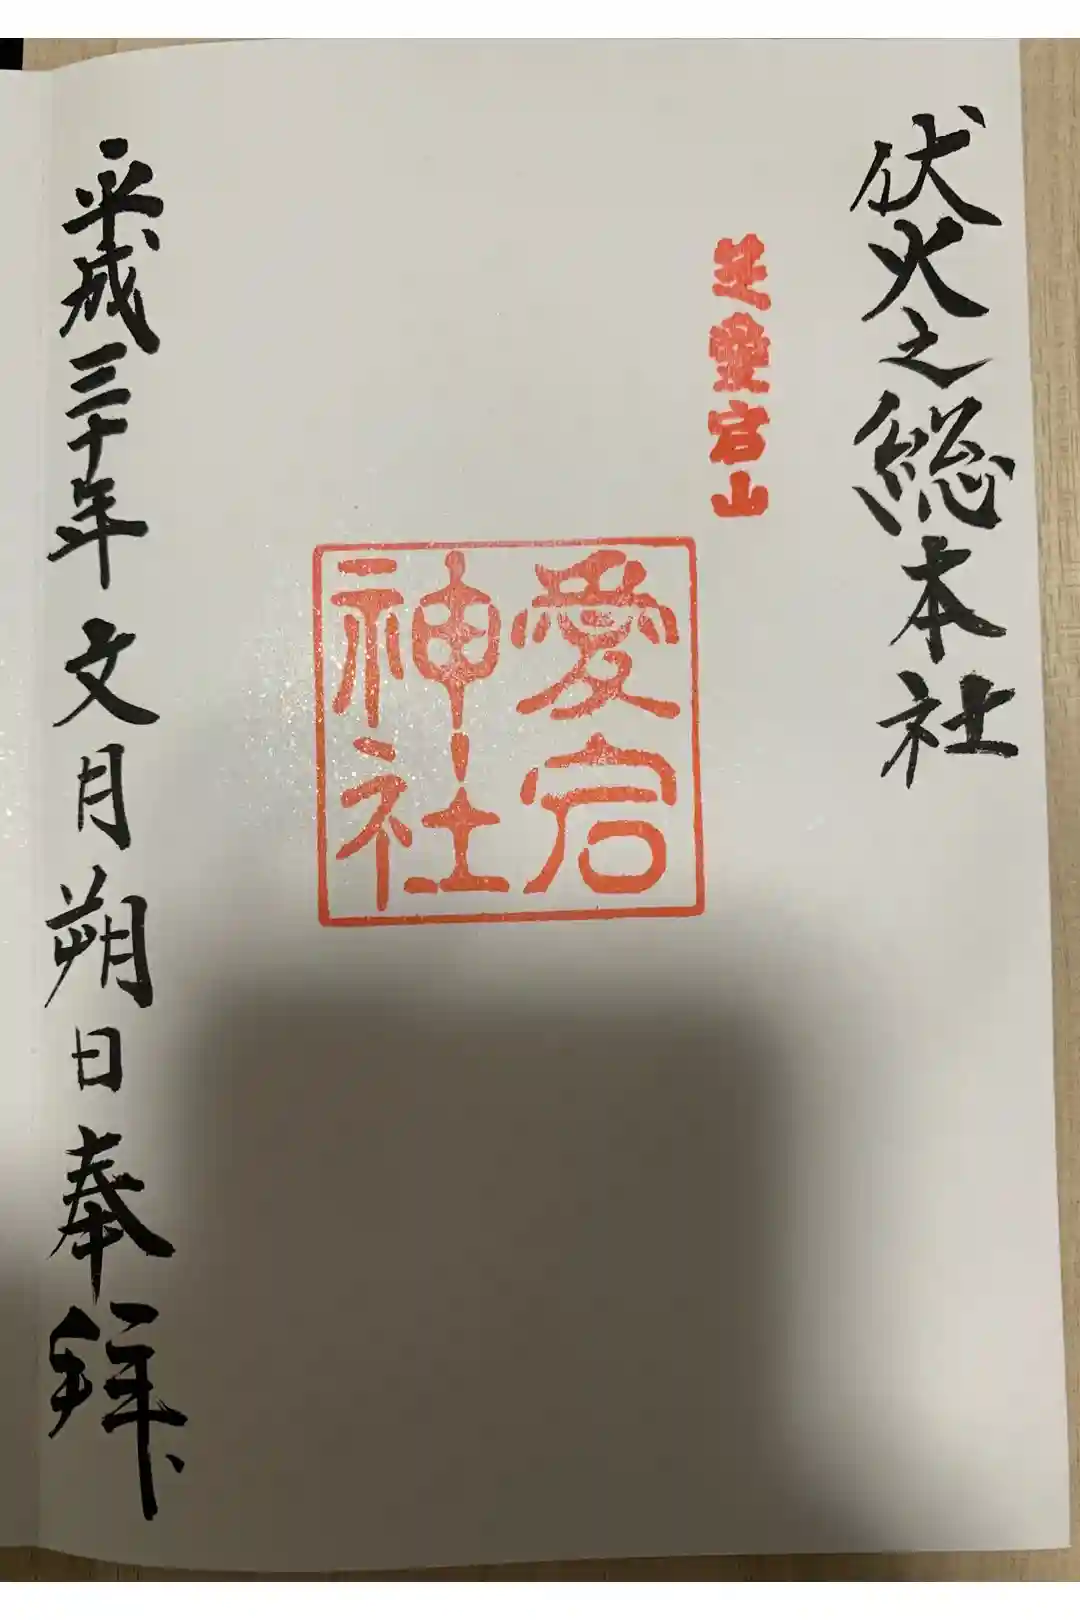 伏火之総本社
芝愛宕山
愛宕
神社
平成三十年文月朔日奉拜